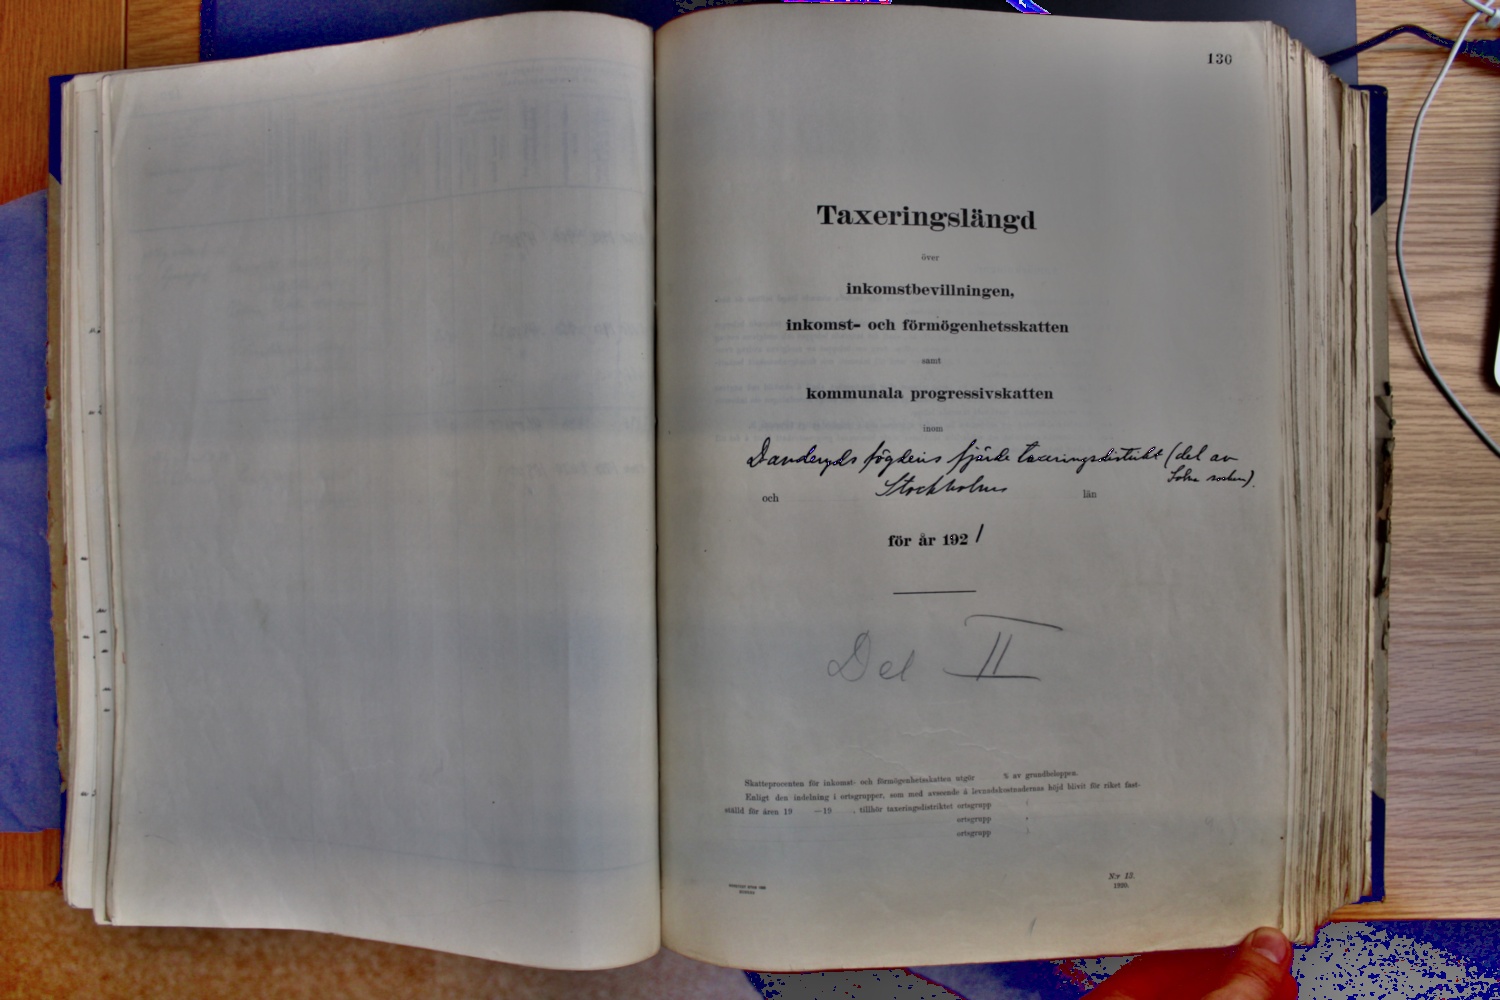 130
Taxeringslängd
över
inkomstbevillningen,
inkomst- och förmögenhetsskatten
samt
kommunala progressivskatten
inom
Danderyds fögderis fjärde taxeringsdistrikt (del av
Solna socken).
och Stockholms län
för år 1921
Del II
Skatteprocenten för inkomst- och förmögenhetsskatten utgör % av grundbeloppen.
Enligt den indelning i ortsgrupper, som med avseende å levnadskostnadernas höjd blivit för riket fast-
ställd för åren 19 —19 , tillhör taxeringsdistriktet ortsgrupp
ortsgrupp
ortsgrupp
N:r 12.
1920.